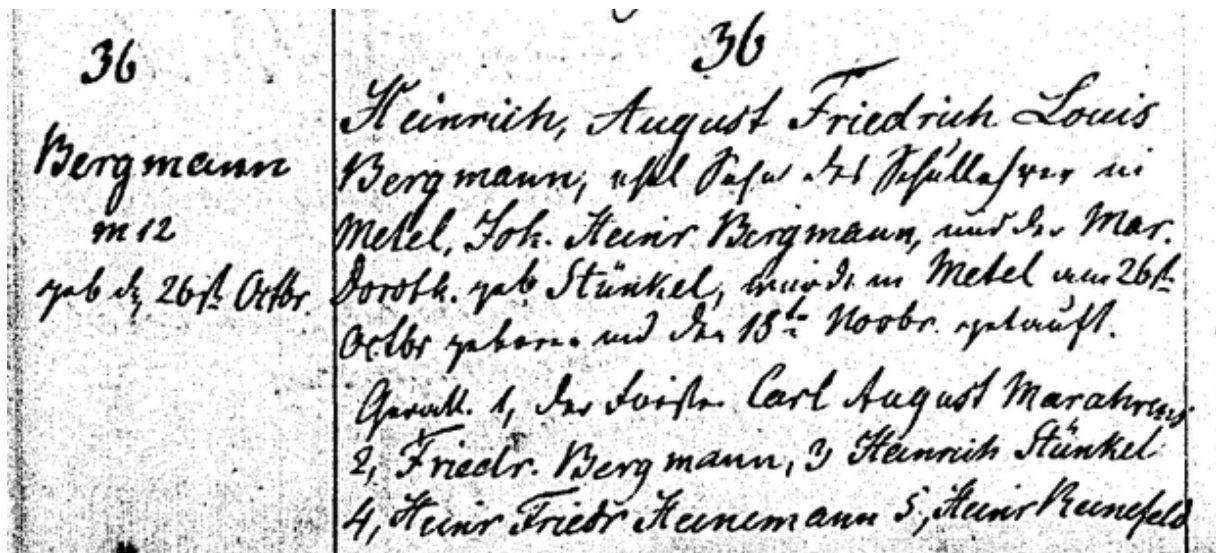 36
Bergmann
m 12
geb d. 26st Octbr.
36
Heinrich, August Friedrich Louis
Bergmann, ehel Sohn des Schullehrer in
Metel, Joh. Heinr Bergmann, und der Mar.
Doroth. geb Stünkel, wurde in Metel am 26st
Octbr geboren und den 15te Novbr. getauft.
Gevatt. 1, der Carl August Marahrens
2, Friedr. Bergmann, 3, Heinrich Stünkel
4, Heinr Friedr Heinemann 5, Heinr Reinefeld